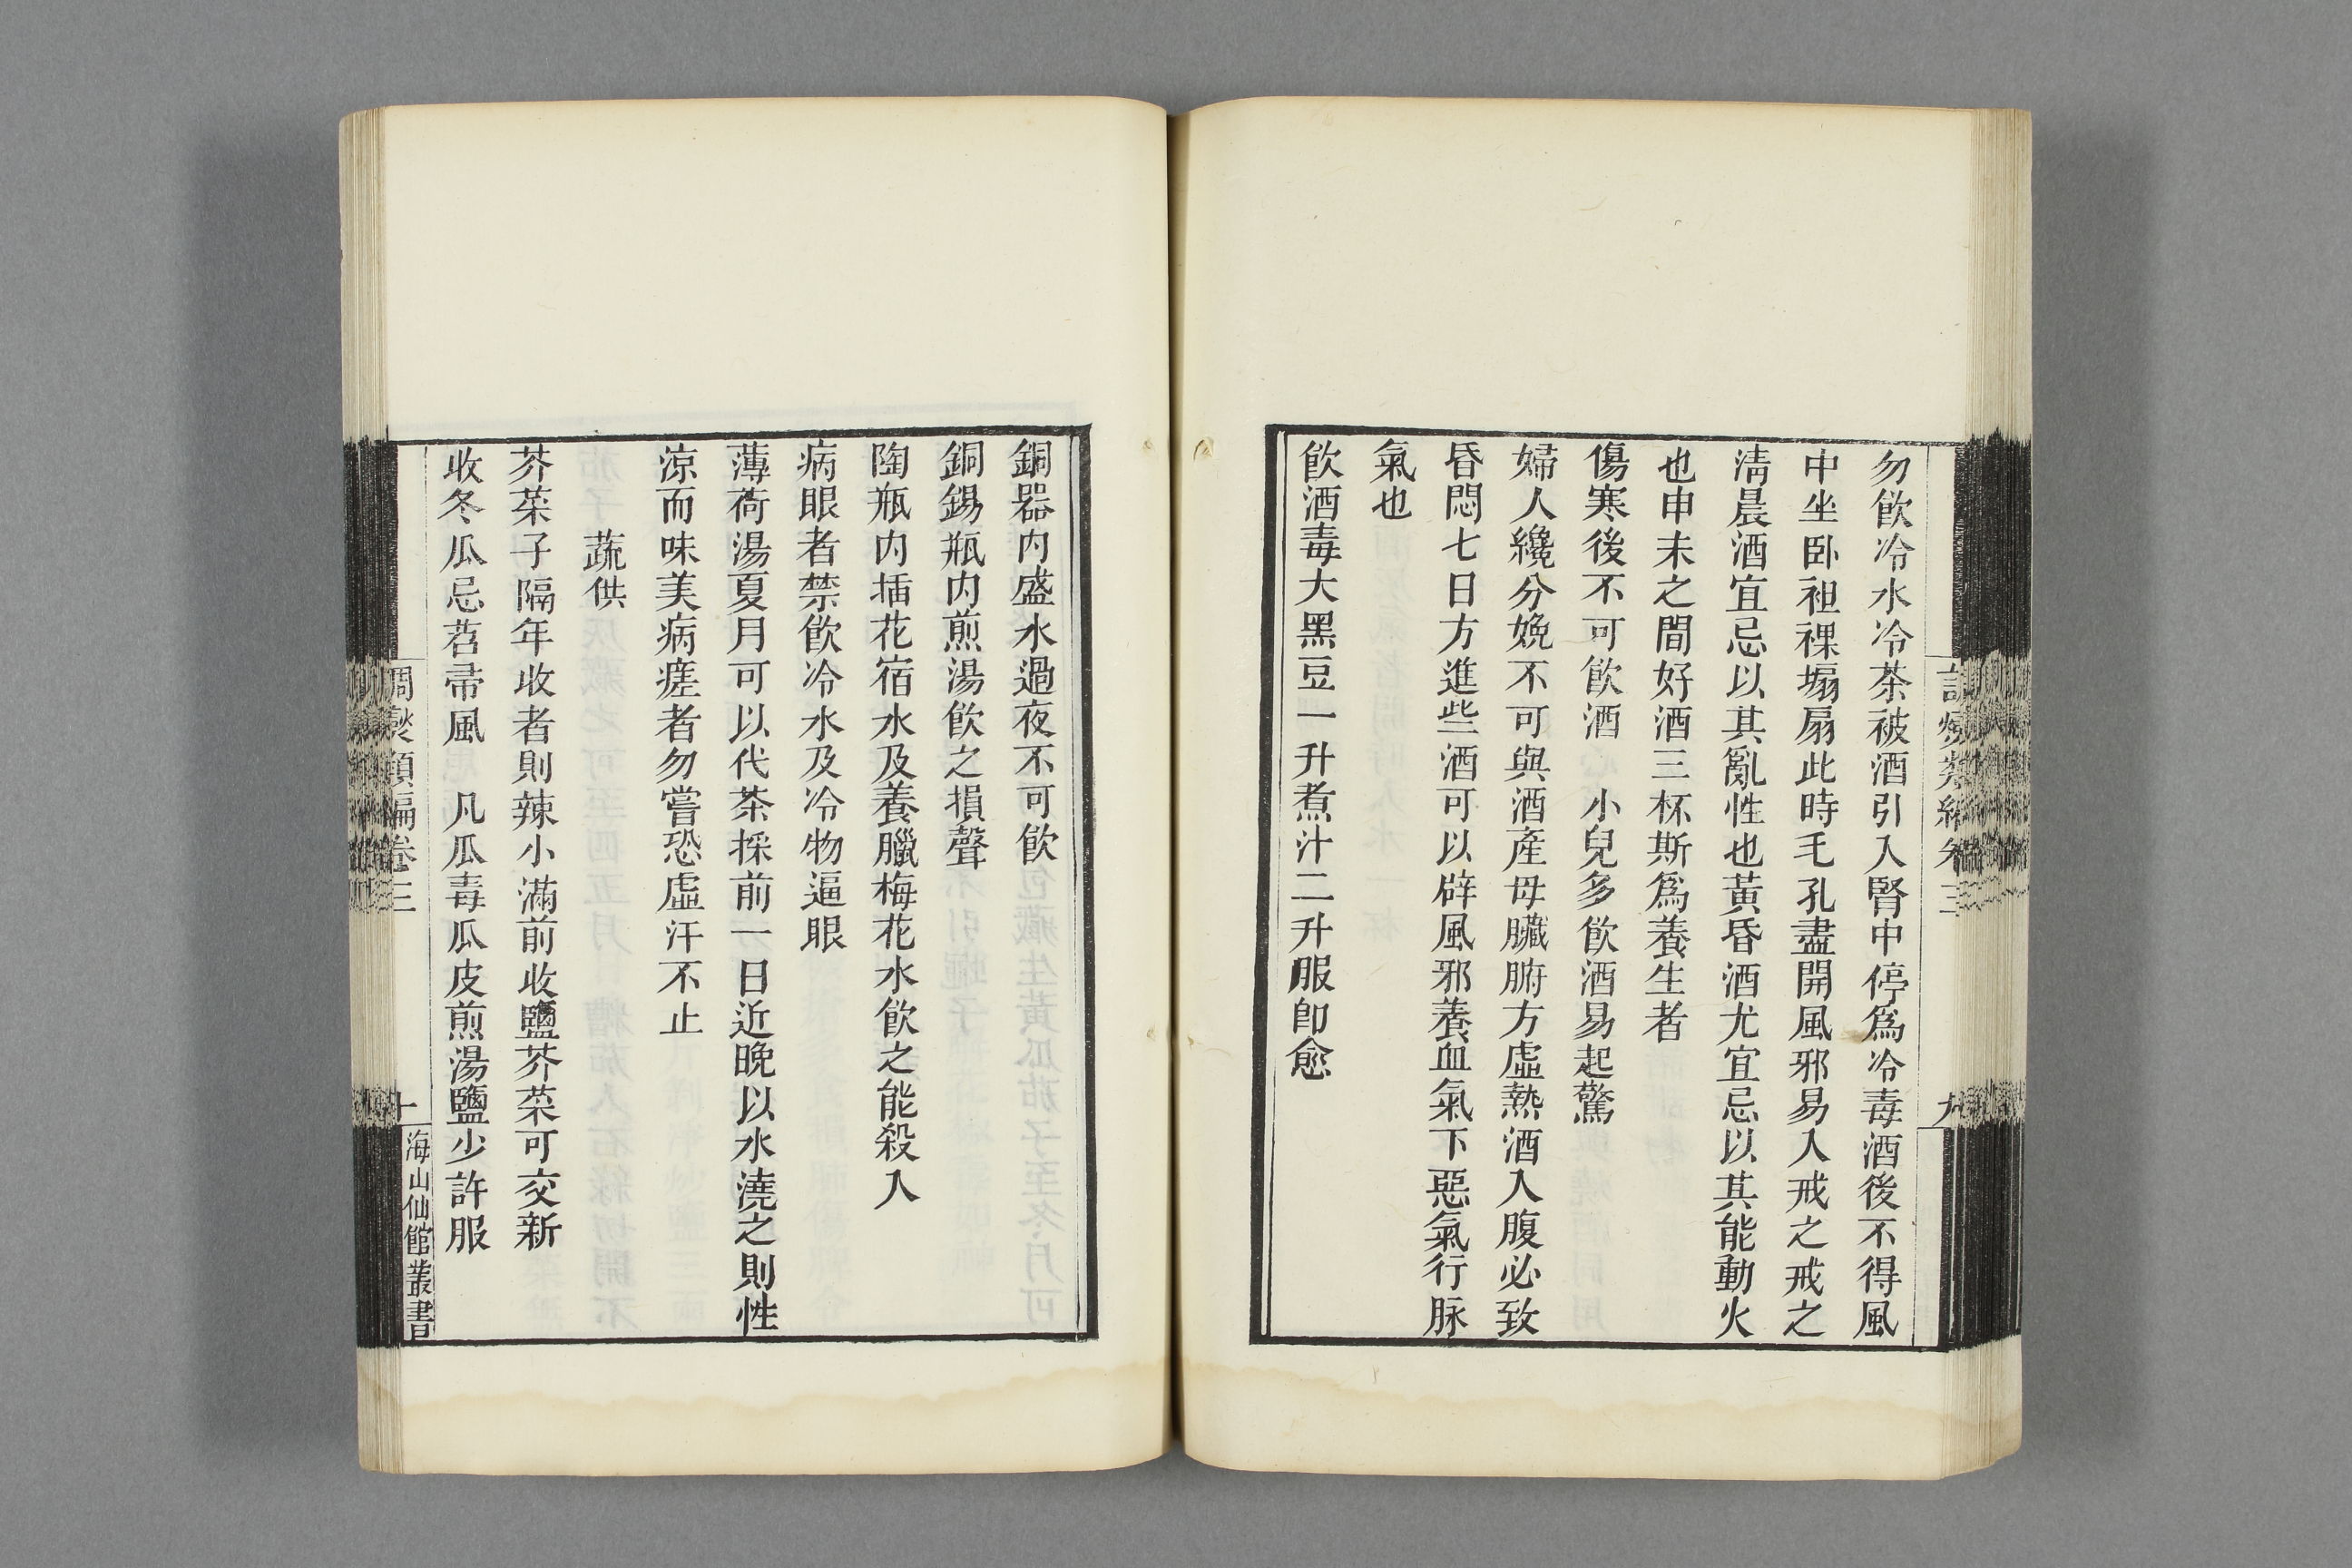 勿飮冷水冷茶被酒引入腎中停爲冷毒酒後不得風
中坐卧袒裸搧扇此時毛孔盡開風邪易入戒之戒之
淸晨酒宜忌以其亂性也黃昏酒尤宜忌以其能動火
也申未之間好酒三杯斯爲養生者
傷寒後不可飮酒　小兒多飮酒易起驚
婦人纔分娩不可與酒產母臟腑方虛熱酒入腹必致
昏悶七日方進些酒可以辟風邪養血氣下惡氣行脉
氣也
飮酒毒大黑豆一升煮汁二升服卽愈
銅器内盛水過夜不可飮
銅錫瓶内煎湯飮之損聲
陶瓶内揷花宿水及養臘梅花水飮之能殺人
病眼者禁飮冷水及冷物逼眼
薄荷湯夏月可以代茶採前一日近晚以水澆之則性
涼而味美病瘥者勿嘗恐虛汗不止
蔬供
芥菜子隔年收者則辣小滿前收鹽芥菜可交新
收冬瓜忌苕帚風　凡瓜毒瓜皮煎湯鹽少許服
調燮類編卷三
十
海山仙館叢書